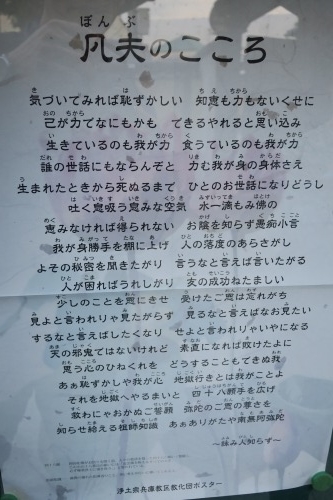 凡夫のこころ
気づいてみれば恥ずかしい 知恵も力もないくせに
己が力でなにもかも できるやれると思い込み
生きているのも我が力 食うているのも我が力
誰の世話にもならんぞと 力む我が身の身体さえ
生まれたときから死ぬるまで ひとのお世話になりどうし
吐く息吸う息みな空気 水一滴もみ佛の
恵みなければ得られない お陰を知らず愚痴小言
我が身勝手を棚に上げ 人の落度のあらさがし
よその秘密を聞きたがり 言うなと言えば言いたがる
人が困ればうれしがり 友の成功ねたましい
少しのことを恩にきせ 受けたご恩は忘れがち
見よと言われりゃ見たがらず 見るなと言えばなお見たい
するなと言えばしたくなり せよと言われりゃいやになる
天の邪鬼ではないけれど 素直になれば敗けたよに
思う心のひねくれを どうすることもできぬ我
あぁ恥ずかしや我が心 地獄行きとは我がことよ
それを地獄へやるまいと 四十八願手を広げ
救わにゃおかぬご誓願 弥陀のご恩の尊さを
知らせ給える祖師知識 あぁありがたや南無阿弥陀
～詠み人知らず～
浄土宗兵庫教区教化団ポスター